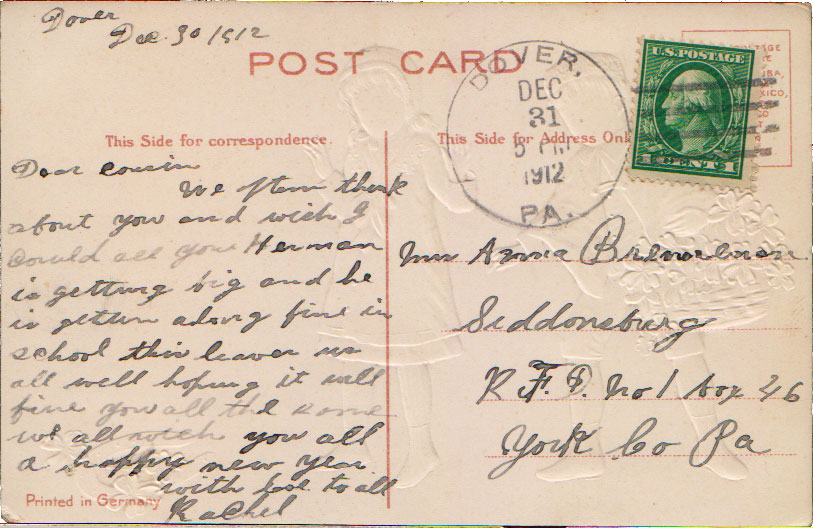 Dover
Dec. 30 1912
POST CARD
DOVER,
DEC
31
5 PM
1912
PA.
U.S. POSTAGE
1 CENTS 1
This Side for correspondence.
This Side for Address Onl
Dear cousin
We often think
about you and wish I
could all you Herman
is getting big and he
is gettin along fine in
school this leaves us
all well hoping it will
fine you all the same
we all wich you all
a happy new year
with love to all
Rachel
Printed in Germany
Anna
Siddonsburg
R. F. D. No 1 box 26
York Co Pa